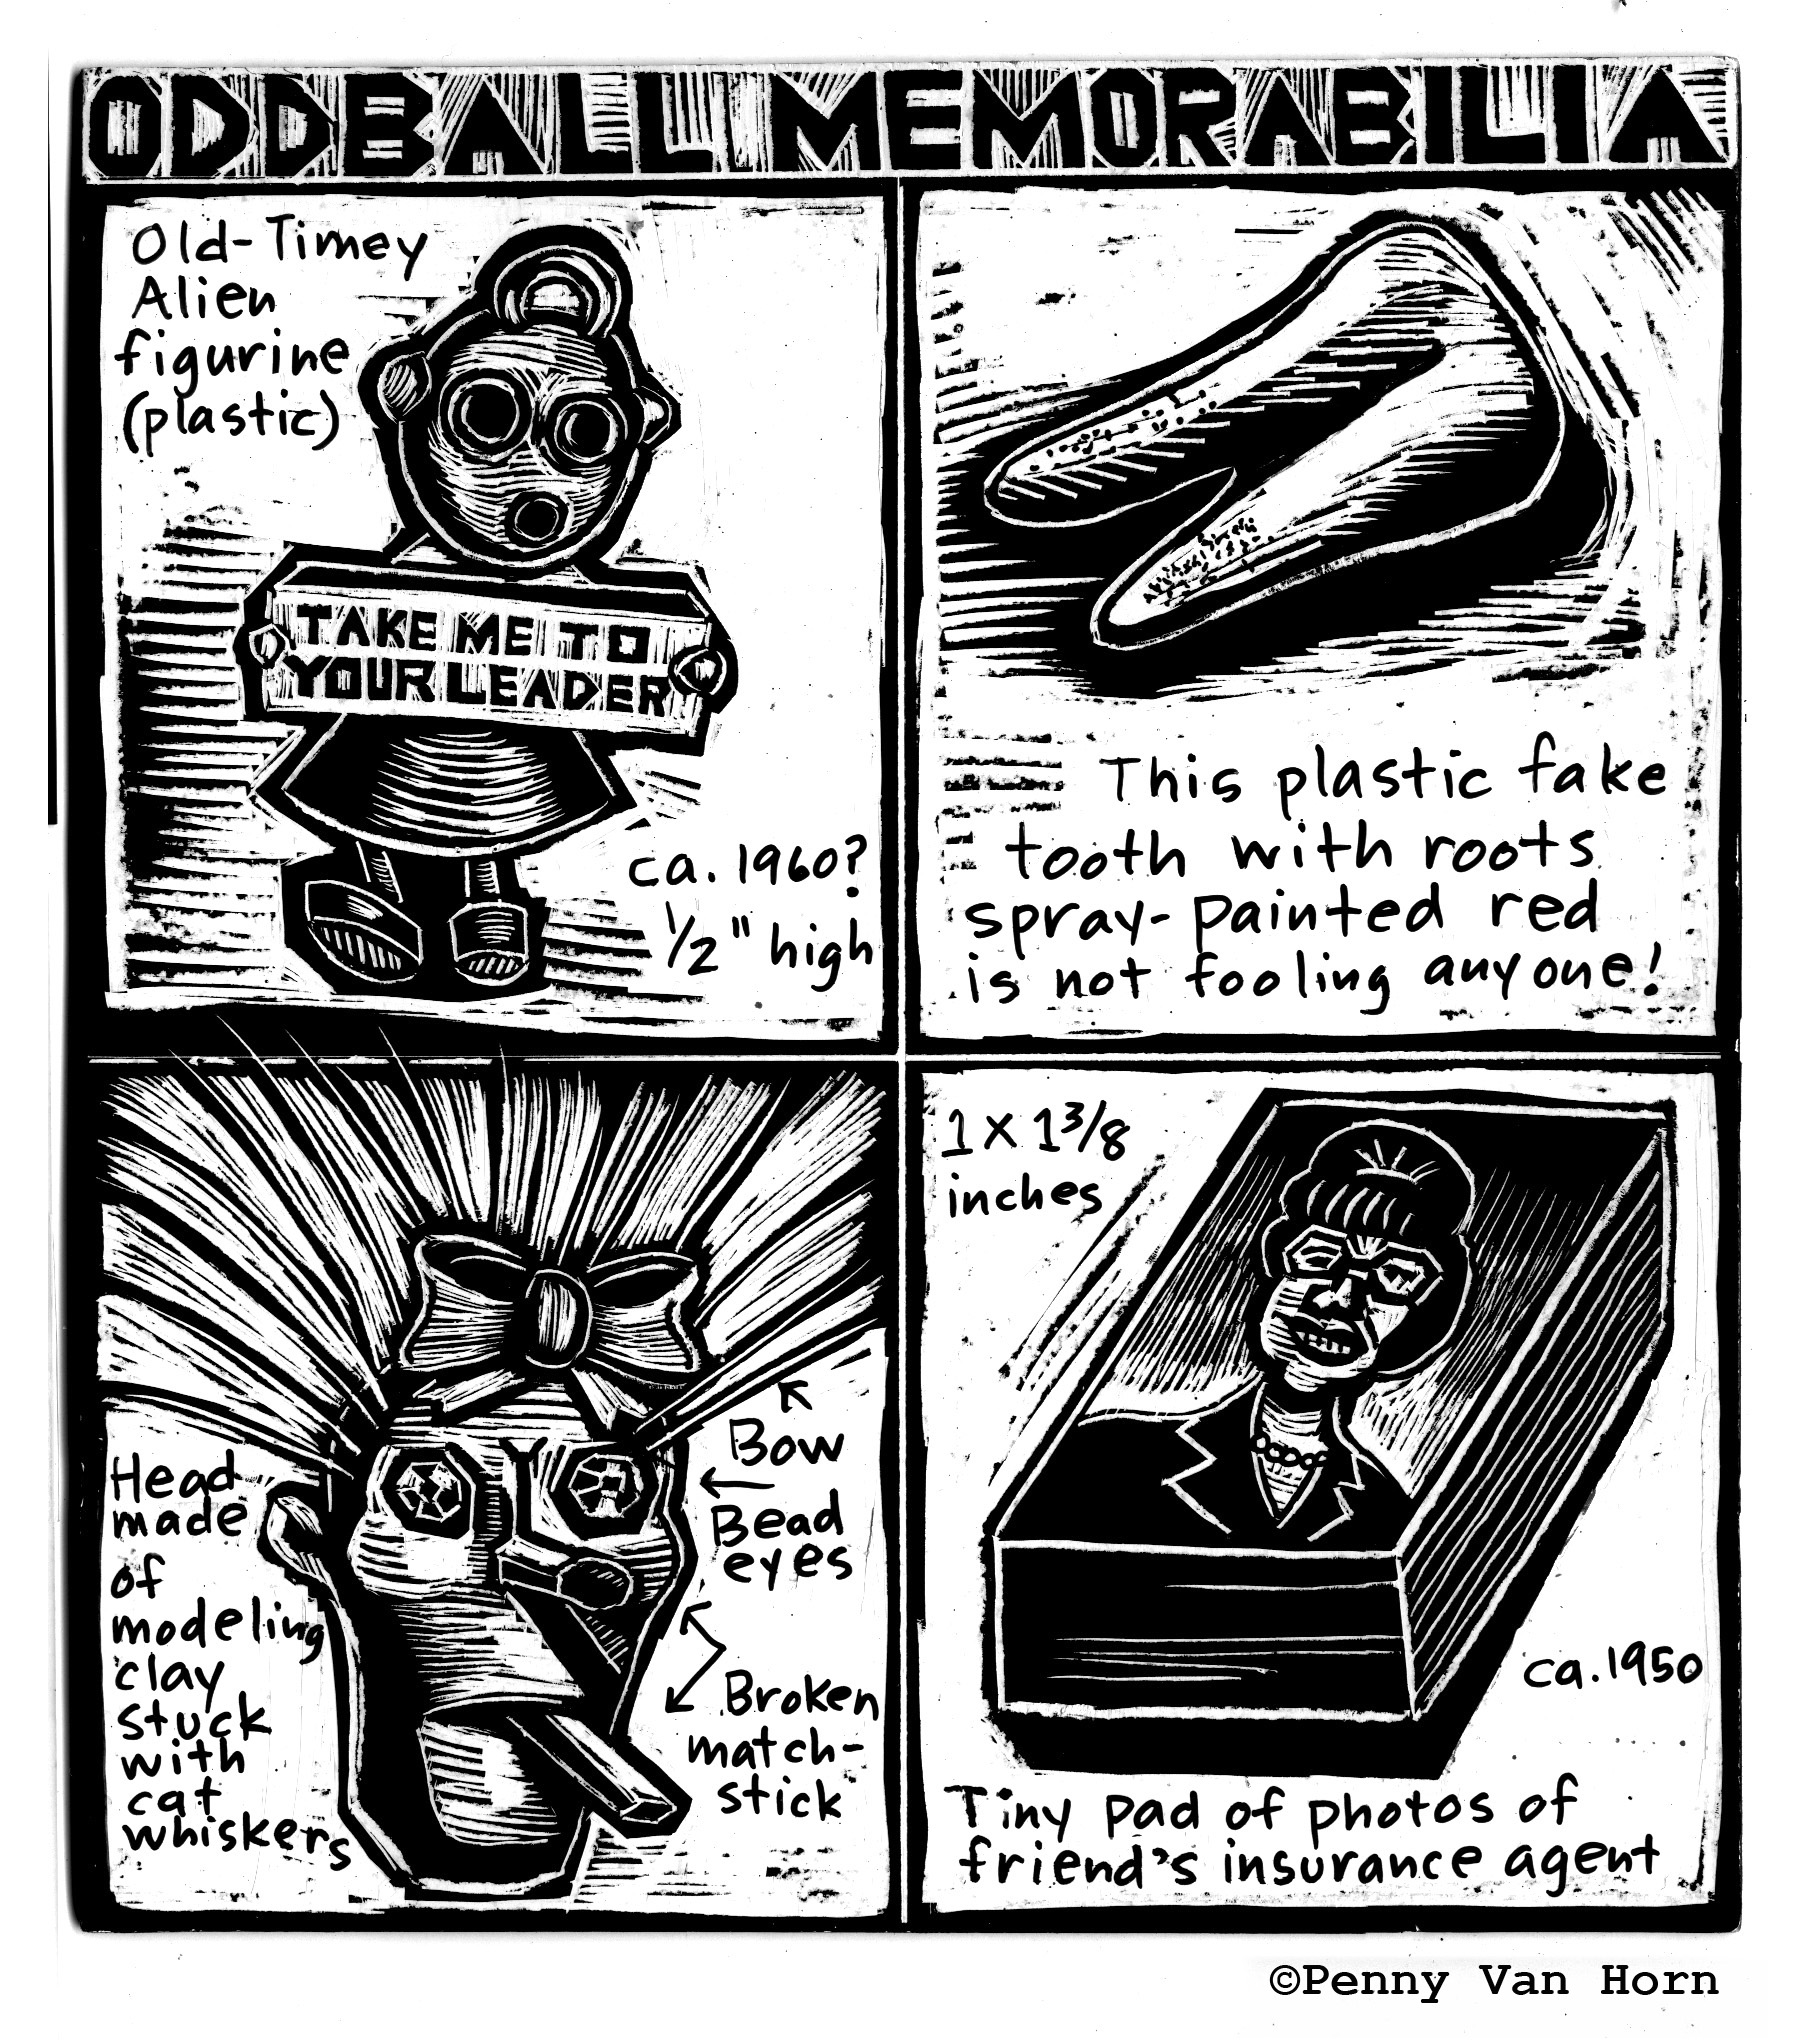 ODDBALL MEMORABILIA
Old-Timey
Alien
figurine
(plastic)
TAKE ME TO
YOUR LEADER
ca. 1960?
1/2" high
This plastic fake
tooth with roots
spray-painted red
is not fooling anyone!
Head
made
of
modeling
clay
stuck
with
cat
whiskers
Bow
Bead
eyes
Broken
match-
stick
1 X 1 3/8
inches
ca. 1950
Tiny pad of photos of
friend's insurance agent
©Penny Van Horn